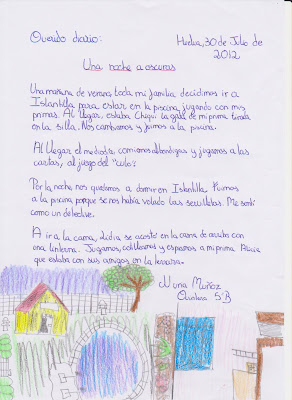 Querido diario:
Huelva, 30 de Julio de
2012
Una noche a oscuras
Una mañana de verano, toda mi familia decidimos ir a
Islantilla para estar en la piscina, jugando con mis
primas. Al llegar, estaba Chiqui la gata de mi prima tirada
en la silla. Nos cambiamos y fuimos a la piscina.
Al llegar el mediodía comíamos albóndigas y jugamos a las
cartas, al juego del "culo".
Por la noche nos quedamos a dormir en Islantilla. Fuimos
a la piscina porque se nos había volado las servilletas. Me sentí
como un detective.
A ir a la cama, Lidia se acostó en la cama de arriba con
una linterna. Jugamos, cotilleamos y espiamos a mi prima Alicia
que estaba con sus amigos en la terraza.
Nuria Muñoz
Quintero 5ºB